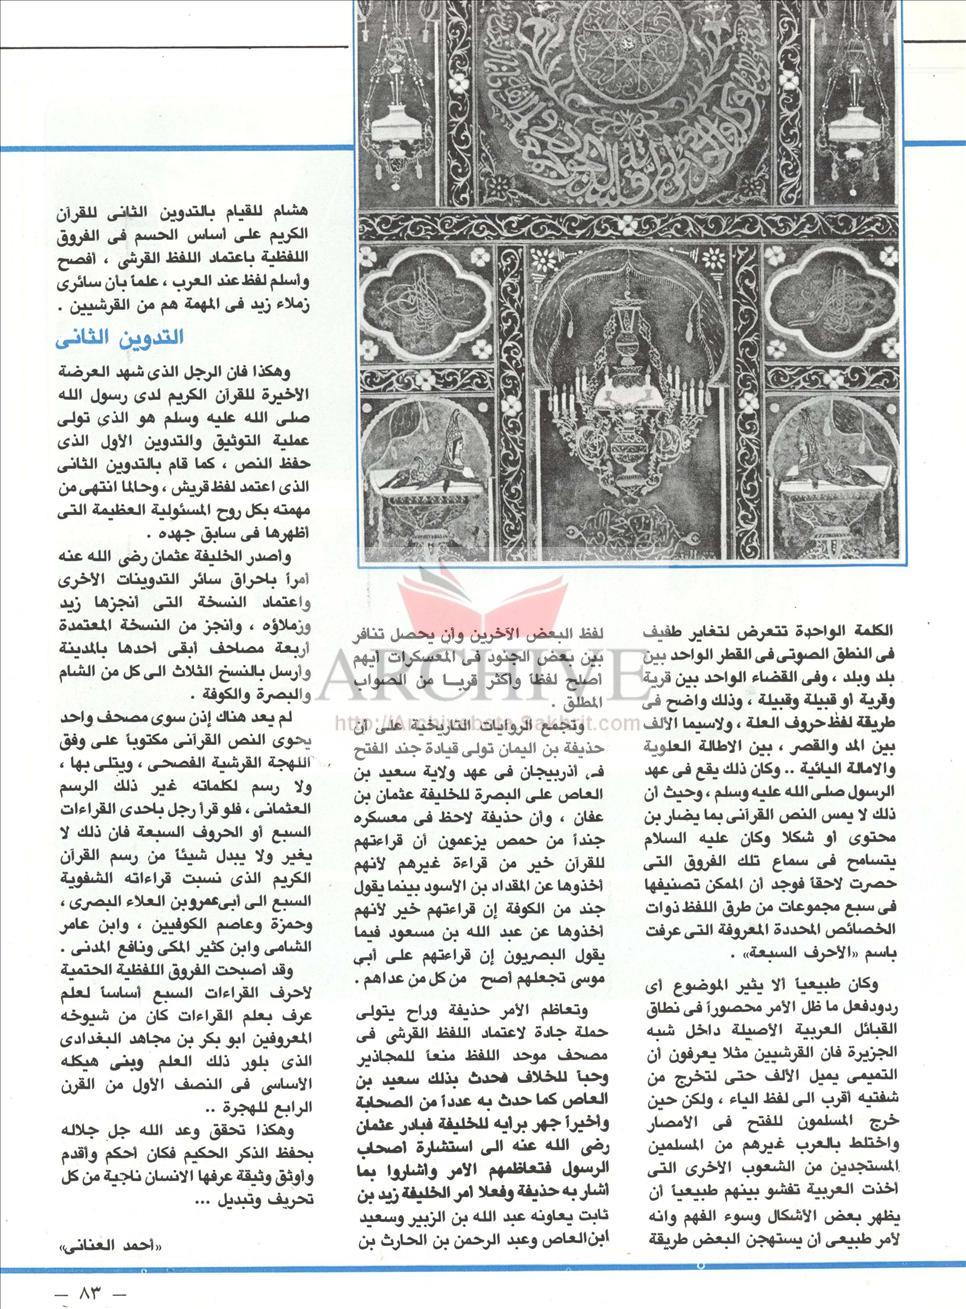 الكلمة الواحدة تتعرض لتغاير طفيف
فى النطق الصوتى فى القطر الواحد بين
بلد وبلد ، وفى القضاء الواحد بين قرية
وقرية أو قبيلة وقبيلة ، وذلك واضح فى
طريقة لفظ حروف العلة ، ولاسيما الألف
بين المد والقصر ، بين الاطالة العلوية
والامالة اليائية .. وكان ذلك يقع فى عهد
الرسول صلى الله عليه وسلم ، وحيث أن
ذلك لا يمس النص القرآنى بما يضار بن
محتوى أو شكلا وكان عليه السلام
يتسامح فى سماع تلك الفروق التى
حصرت لاحقاً فوجد أن الممكن تصنيفها
فى سبع مجموعات من طرق اللفظ ذوات
الخصائص المحددة المعروفة التى عرفت
باسم «الأحرف السبعة» .
وكان طبيعياً ألا يثير الموضوع أى
ردودفعل ما ظل الأمر محصوراً فى نطاق
القبائل العربية الأصيلة داخل شبه
الجزيرة فان القرشيين مثلا يعرفون أن
التميمى يميل الألف حتى لتخرج من
شفتيه أقرب الى لفظ الياء ، ولكن حين
خرج المسلمون للفتح فى الأمصار
واختلط بالعرب غيرهم من المسلمين
المستجدين من الشعوب الأخرى التى
أخذت العربية تفشو بينهم طبيعياً أن
يظهر بعض الأشكال وسوء الفهم وانه
لأمر طبيعى أن يستهجن البعض طريقة
لفظ البعض الآخرين وأن يحصل تنافر
بين بعض الجنود فى المعسكرات أيهم
أصلح لفظاً وأكثر قرباً من الصواب
المطلق .
وتجمع الروايات التاريخية على أن
حذيفة بن اليمان تولى قيادة جند الفتح
فى أذربيجان فى عهد ولاية سعيد بن
العاص على البصرة للخليفة عثمان بن
عفان ، وأن حذيفة لاحظ فى معسكره
جنداً من حمص يزعمون أن قراءتهم
للقرآن خير من قراءة غيرهم لأنهم
أخذوها عن المقداد بن الأسود بينما يقول
جند من الكوفة إن قراءتهم خير لأنهم
أخذوها عن عبد الله بن مسعود فيما
يقول البصريون إن قراءتهم على أبى
موسى تجعلهم أصح من كل من عداهم .
وتعاظم الأمر حذيفة وراح يتولى
حملة جادة لاعتماد اللفظ القرشى فى
مصحف موحد اللفظ منعاً للمجاذير
وحباً للخلاف فحدث بذلك سعيد بن
العاص كما حدث به عدداً من الصحابة
وأخيراً جهر برأيه للخليفة فبادر عثمان
رضى الله عنه الى استشارة أصحاب
الرسول فتعاظمهم الأمر وأشاروا بما
أشار به حذيفة وفعلا أمر الخليفة زيد بن
ثابت يعاونه عبد الله بن الزبير وسعيد
ابن العاص وعبد الرحمن بن الحارث بن
هشام للقيام بالتدوين الثانى للقرآن
الكريم على أساس الحسم فى الفروق
اللفظية باعتماد اللفظ القرشى ، أفصح
وأسلم لفظ عند العرب ، علماً بأن سائرى
زملاء زيد فى المهمة هم من القرشيين .
التدوين الثانى
وهكذا فان الرجل الذى شهد العرضة
الأخيرة للقرآن الكريم لدى رسول الله
صلى الله عليه وسلم هو الذى تولى
عملية التوثيق والتدوين الأول الذى
حفظ النص ، كما قام بالتدوين الثانى
الذى اعتمد لفظ قريش ، وحالما انتهى من
مهمته بكل روح المسئولية العظيمة التى
اظهرها فى سابق جهده .
وأصدر الخليفة عثمان رضى الله عنه
أمراً باحراق سائر التدوينات الأخرى
واعتماد النسخة التى أنجزها زيد
وزملاؤه ، وأنجز من النسخة المعتمدة
أربعة مصاحف أبقى أحدها بالمدينة
وأرسل بالنسخ الثلاث الى كل من الشام
والبصرة والكوفة .
لم يعد هناك إذن سوى مصحف واحد
يحوى النص القرآنى مكتوباً على وفق
اللهجة القرشية الفصحى ، ويتلى بها ،
ولا رسم لكلماته غير ذلك الرسم
العثمانى ، فلو قرأ رجل باحدى القراءات
السبع أو الحروف السبعة فان ذلك لا
يغير ولا يبدل شيئاً من رسم القرآن
الكريم الذى نسبت قراءاته الشفوية
السبع الى أبى عمرو بن العلاء البصرى ،
وحمزة وعاصم الكوفيين ، وابن عامر
الشامى وابن كثير المكى ونافع المدنى .
وقد أصبحت الفروق اللفظية الحتمية
لأحرف القراءات السبع أساساً لعلم
عرف بعلم القراءات كان من شيوخه
المعروفين ابو بكر بن مجاهد البغدادى
الذى بلور ذلك العلم وبنى هيكله
الأساسى فى النصف الأول من القرن
الرابع للهجرة ..
وهكذا تحقق وعد الله جل جلاله
بحفظ الذكر الحكيم فكان أحكم وأقدم
وأوثق وثيقة عرفها الانسان ناجية من كل
تحريف وتبديل ...
«أحمد العنانى»
— ٨٣ —
ARCHIVE
http://Archivebeta.Sakhrit.com